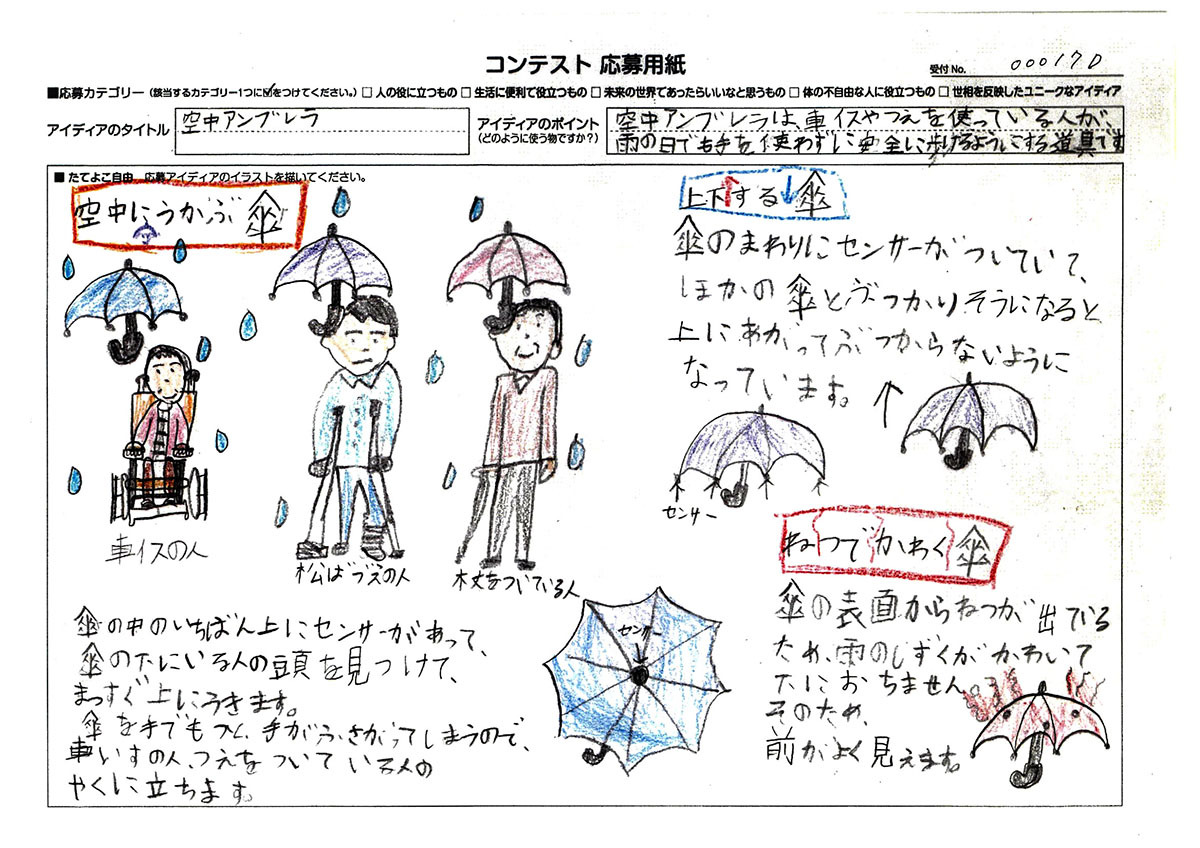 コンテスト 応募用紙
受付 No. 000170
■応募カテゴリー（該当するカテゴリー1つに☑をつけてください。）□ 人の役に立つもの □ 生活に便利で役立つもの □ 未来の世界であったらいいなと思うもの □ 体の不自由な人に役立つもの □ 世相を反映したユニークなアイディア
アイディアのタイトル
空中アンブレラ
アイディアのポイント
（どのように使う物ですか？）
空中アンブレラは、車イスやつえを使っている人が、
雨の日でも手を使わずに安全に歩けるようにする道具です
■ たてよこ自由　応募アイディアのイラストを描いてください。
空中にうかぶ傘
車イスの人
松ばづえの人
杖をついている人
傘の中のいちばん上にセンサーがあって、
傘の下にいる人の頭を見つけて、
まっすぐ上にうきます。
傘を手でもつと、手がふさがってしまうので、
車いすの人、つえをついている人の
やくに立ちます。
センサー
上下↑する↓傘
傘のまわりにセンサーがついていて、
ほかの傘とぶつかりそうになると
上にあがってぶつからないように
なっています。
↑
センサー
ねつでかわく傘
傘の表面からねつが出ている
ため、雨のしずくがかわいて
下におちません。
そのため、
前がよく見えます。